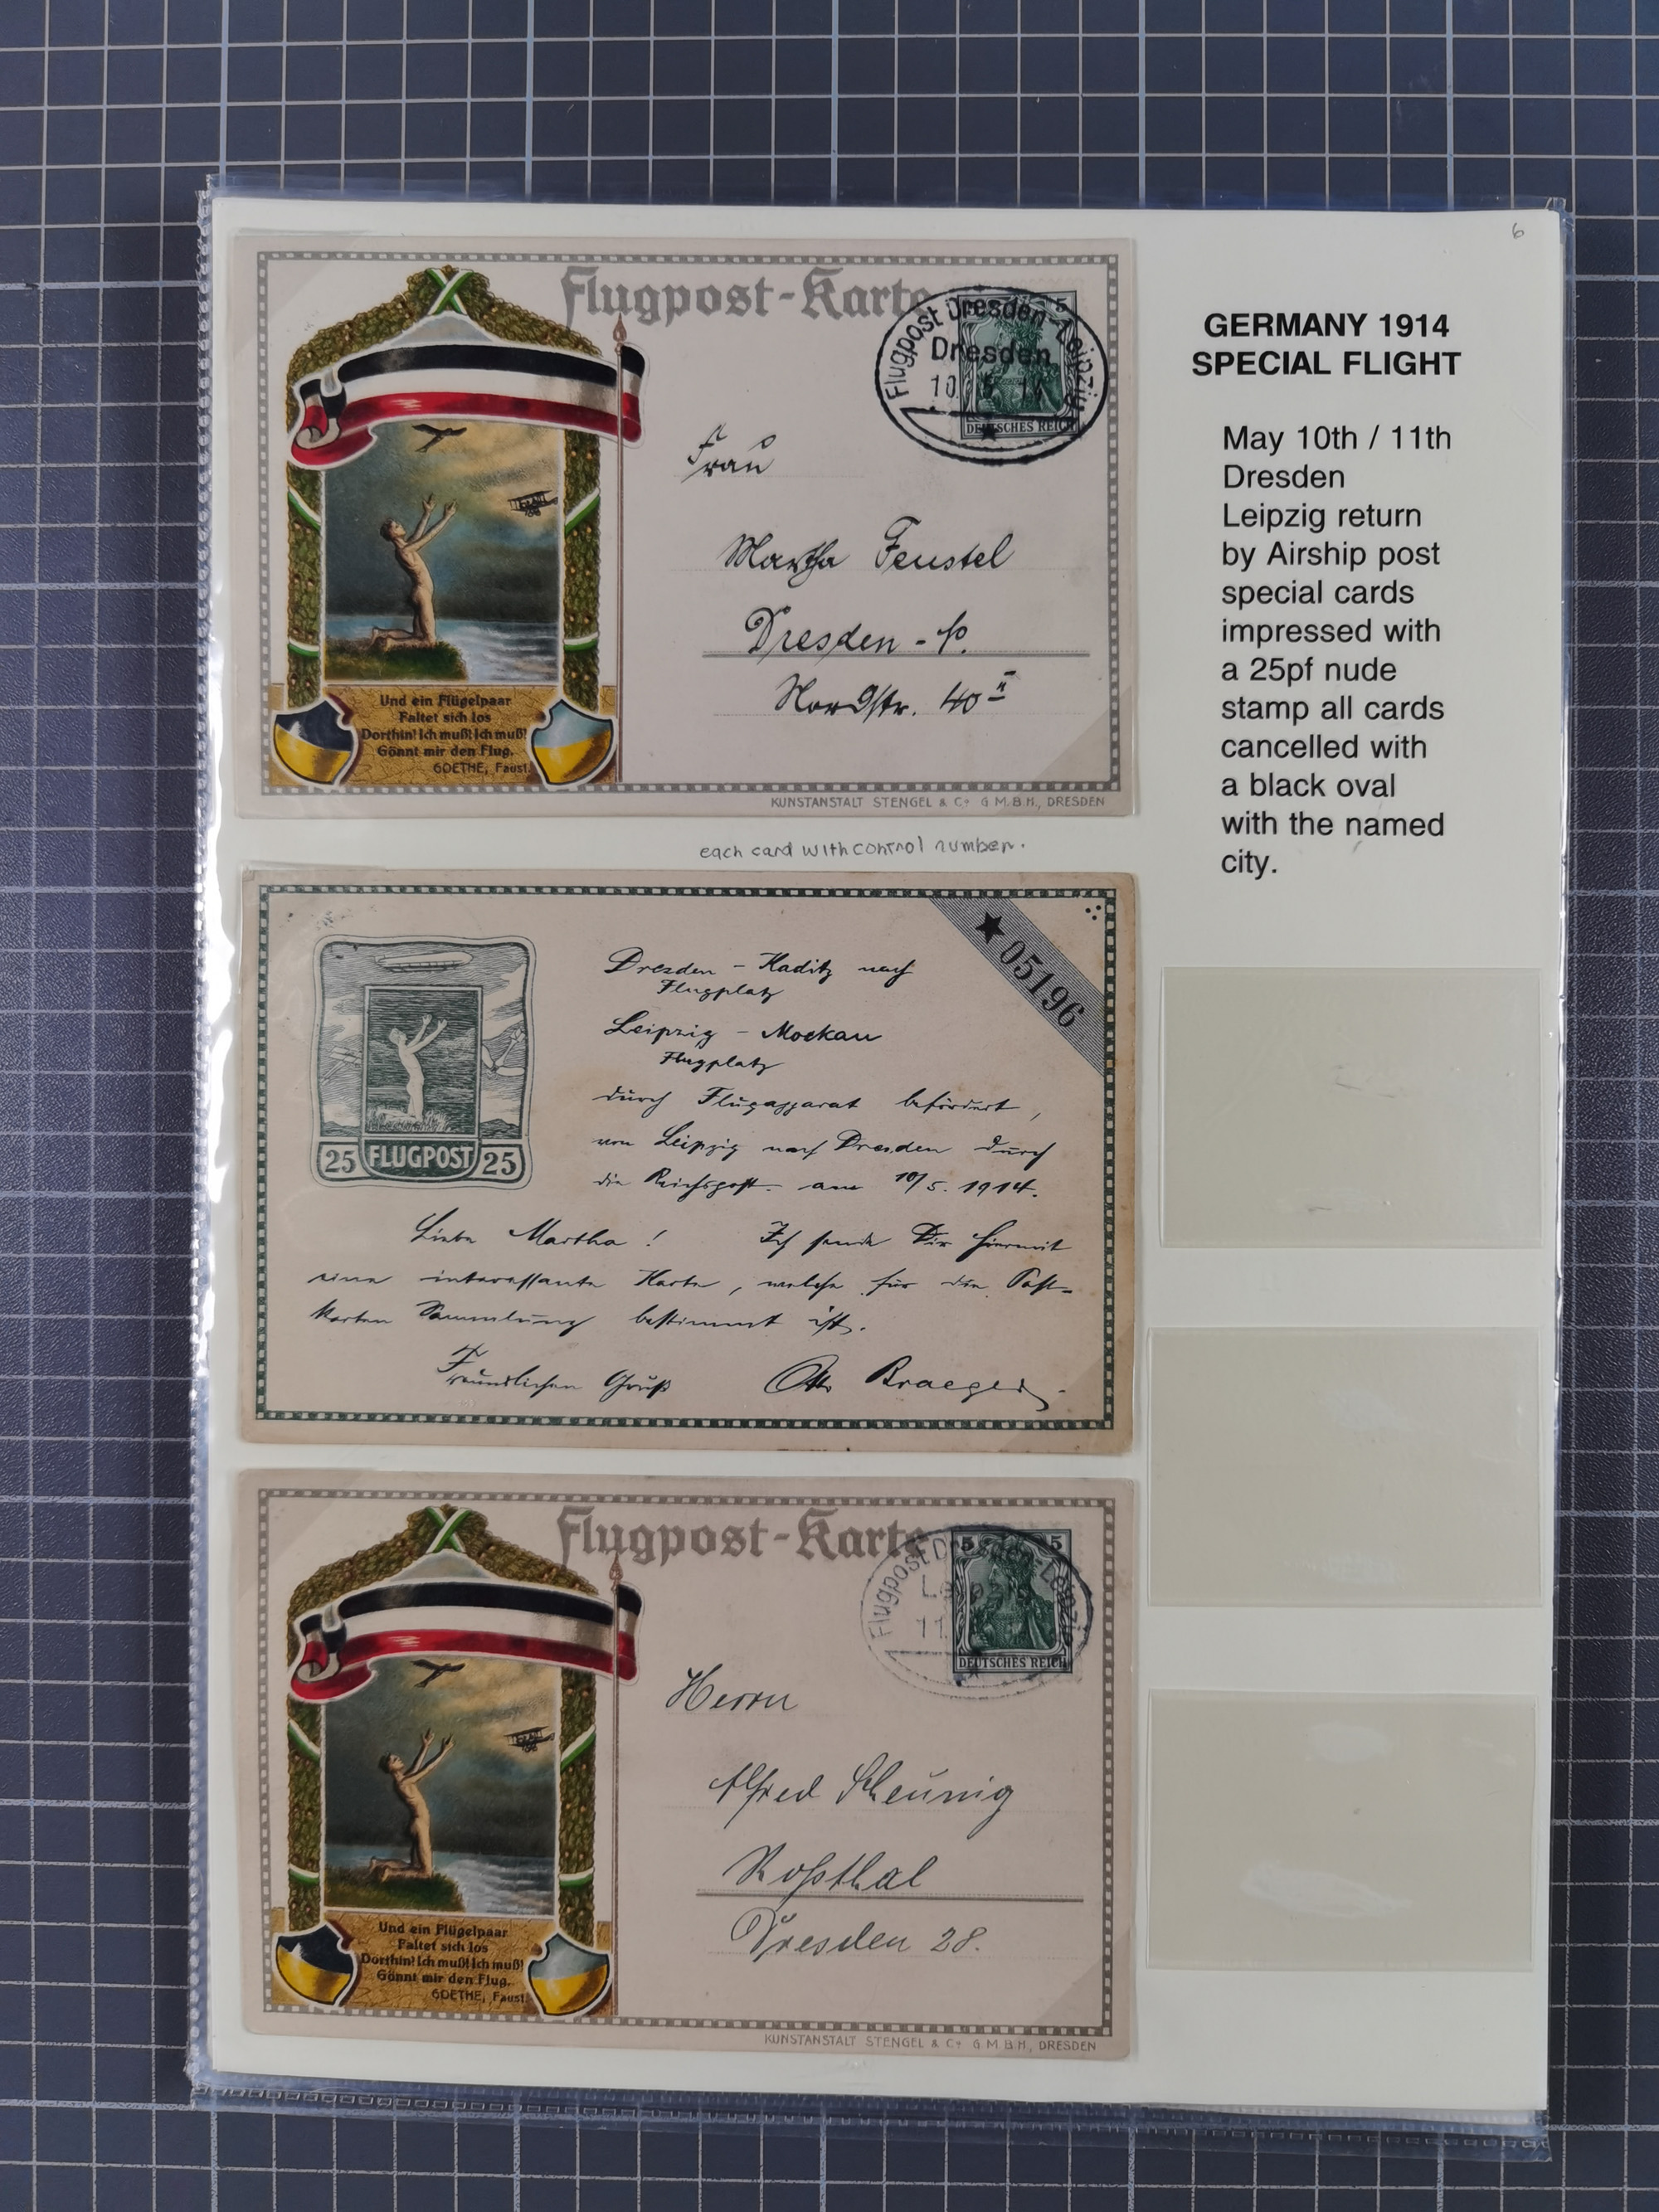 6
GERMANY 1914
SPECIAL FLIGHT
May 10th / 11th
Dresden
Leipzig return
by Airship post
special cards
impressed with
a 25pf nude
stamp all cards
cancelled with
a black oval
with the named
city.
Flugpost-Karte
Flugpost Dresden-Leipzig
Dresden
10. 5. 14
5
DEUTSCHES REICH
Frau
Martha Feustel
Dresden - N.
Nordstr. 40 II
Und ein Flügelpaar
Faltet sich los
Dorthin! Ich muß! Ich muß!
Gönnt mir den Flug.
GOETHE, Faust.
KUNSTANSTALT STENGEL & Co G.M.B.H., DRESDEN
each card with control number.
★ 05196
25 FLUGPOST 25
Dresden - Kaditz nach
Flugplatz
Leipzig - Mockau
Flugplatz
durch Flugapparat befördert,
von Leipzig nach Dresden durch
die Reichspost am 10/5. 1914.
Liebe Martha! Ich sende Dir hiermit
eine interessante Karte, welche für die Post-
karten Sammlung bestimmt ist.
Freundlichen Gruß Otto
Flugpost-Karte
Flugpost Dresden-Leipzig
Leipzig
11.
5 5
DEUTSCHES REICH
Herrn
Alfred Scheunig
Roßthal
Dresden 28.
Und ein Flügelpaar
Faltet sich los
Dorthin! Ich muß! Ich muß!
Gönnt mir den Flug.
GOETHE, Faust.
KUNSTANSTALT STENGEL & Co G.M.B.H., DRESDEN